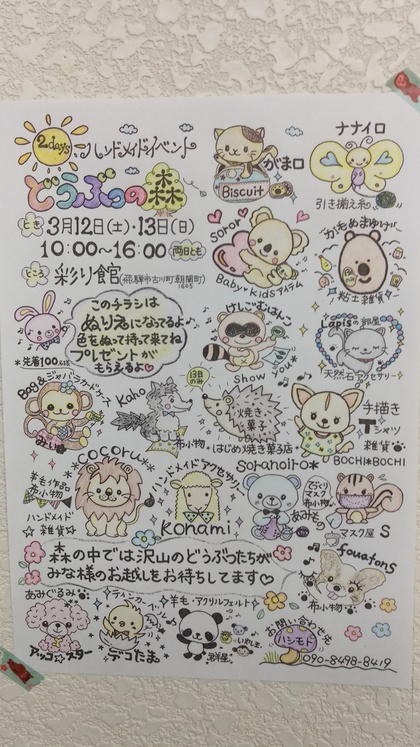 2days
ハンドメイドイベント
どうぶつの森
とき 3月12日(土)・13日(日)
10:00～16:00 両日とも
ところ 彩り館
がま口
Biscuit
ナナイロ
引き揃え糸
soror
Baby・Kidsアイテム
かもめまゆげ
粘土雑貨
このチラシは
ぬりえになってるよ♪
色をぬって持って来てね
プレゼントが
もらえるよ♡
*先着100名様
けしごむはんこ
Show You*
Lapisの部屋
天然石アクセサリー
Boo&ジャバラドーナツ
Kaho
布小物
13日のみ
焼き菓子
はじめ焼き菓子店
手描き
Tシャツ
雑貨
BOCHI*BOCHI
*cocoru*
羊毛作品
布小物
ハンドメイド
☆雑貨☆
ハンドメイドアクセサリー
Konami
soranoiro*
マスク
布小物
あみもの
マスク屋 S
森の中では沢山のどうぶつたちが
みな様のお越しをお待ちしてます♡
fouatons
布小物
あみぐるみ
アッコ☆スター
デコたま。
羊毛・アクリルフェルト
お問い合わせ
ハシモト
090-8498-8419